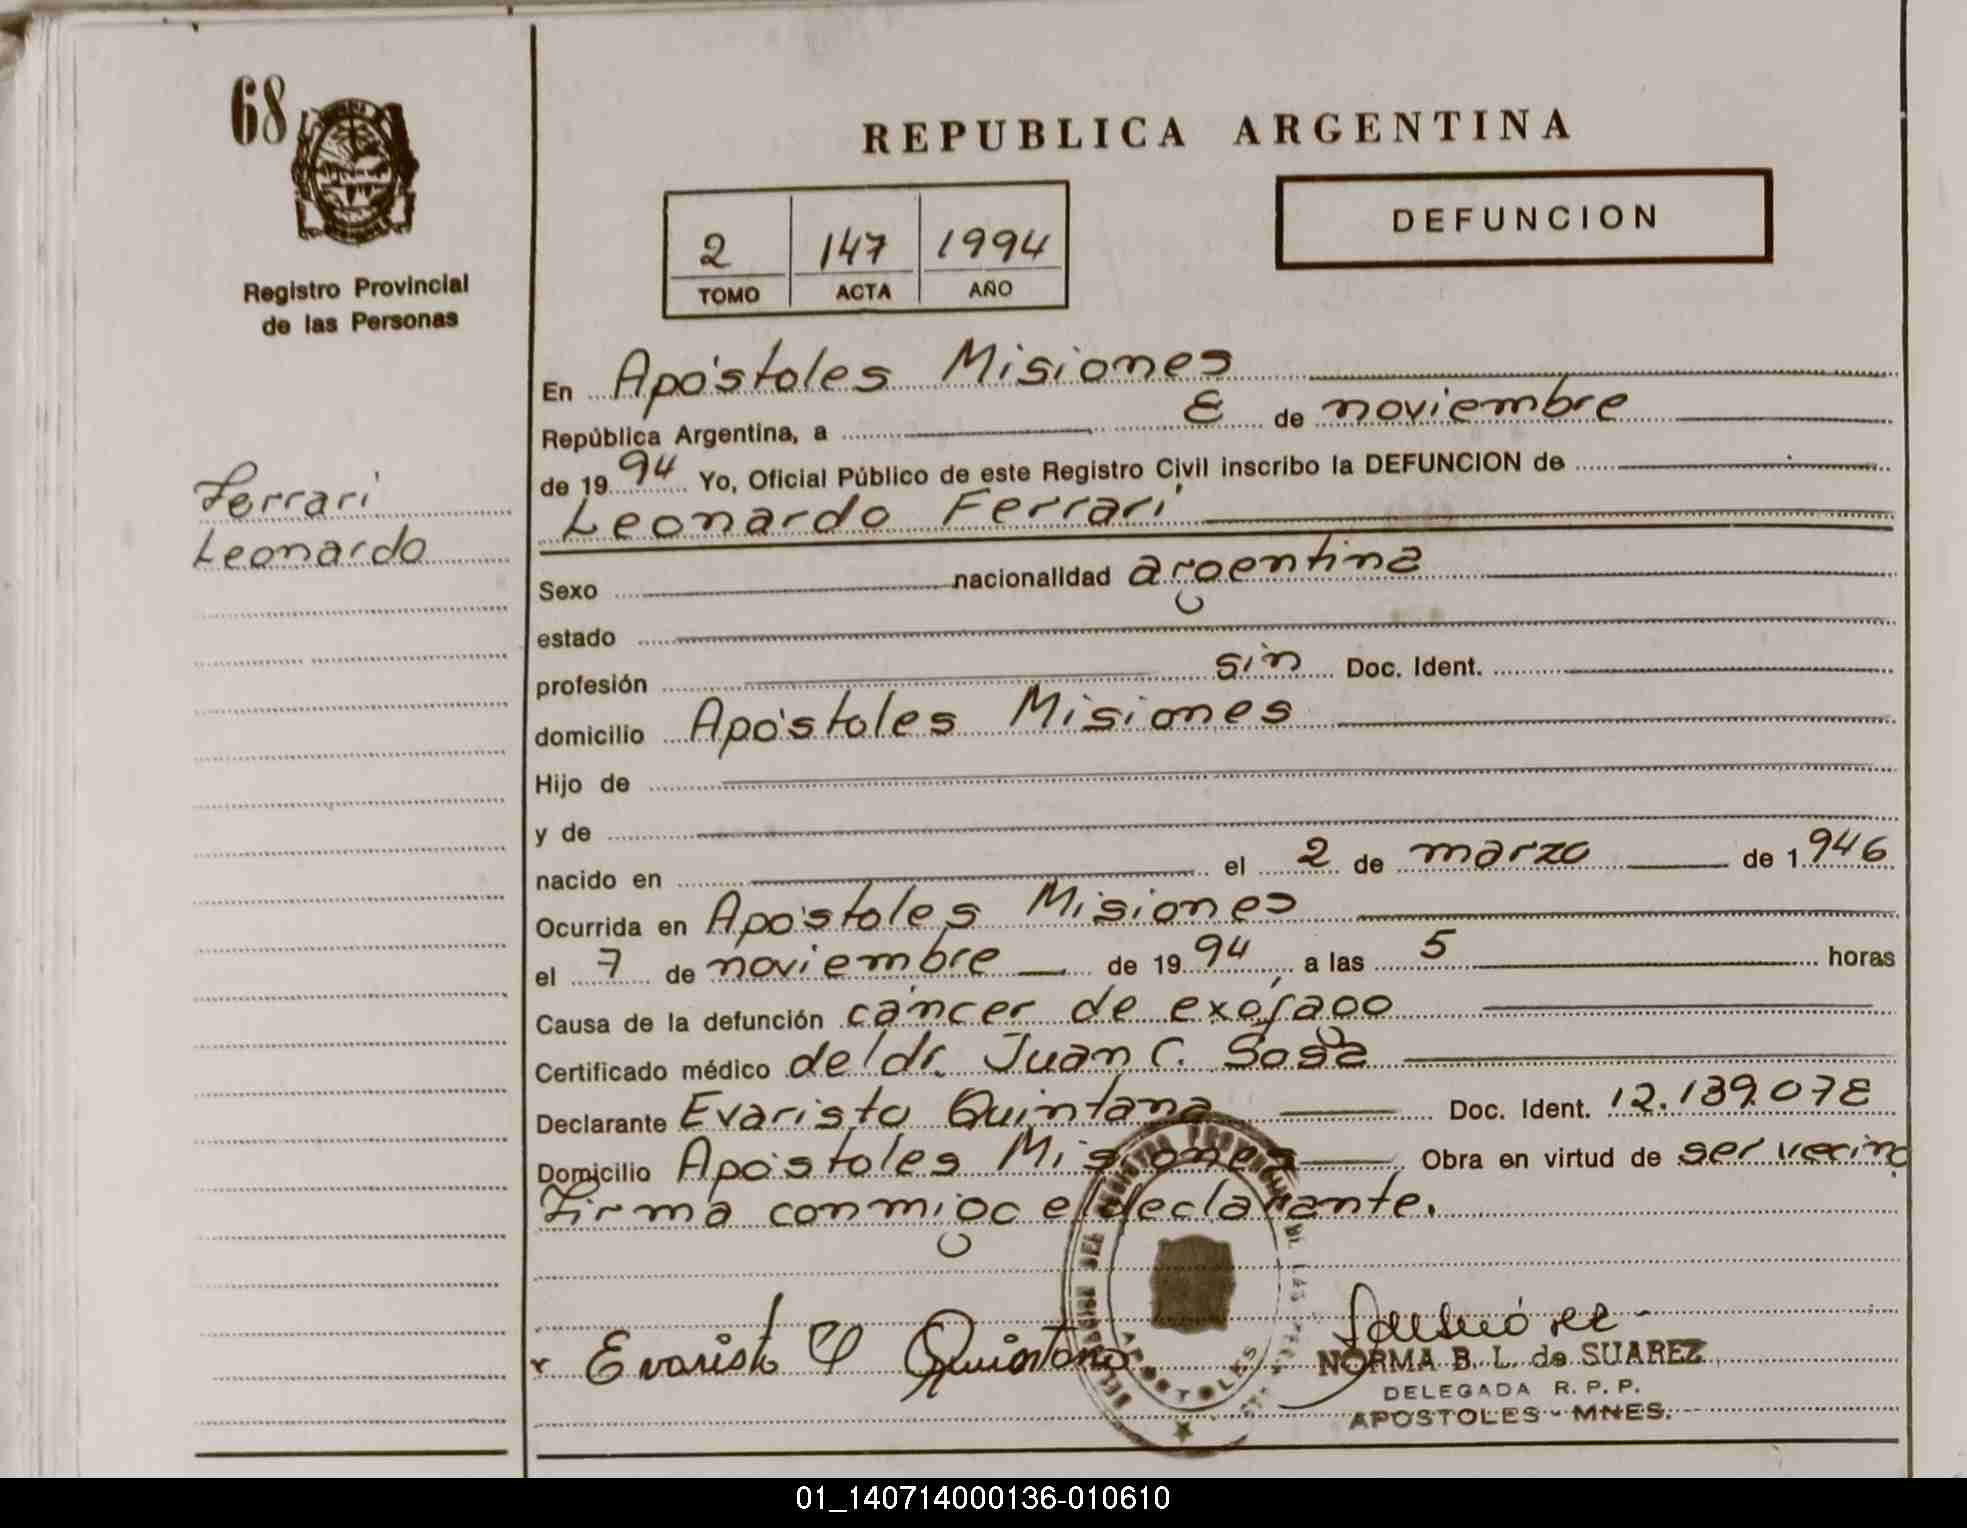 68
Registro Provincial
de las Personas
Ferrari
Leonardo
REPUBLICA ARGENTINA
2 147 1994
TOMO ACTA AÑO
DEFUNCION
En Apóstoles Misiones
República Argentina, a 8 de noviembre
de 1994 Yo, Oficial Público de este Registro Civil inscribo la DEFUNCION de
Leonardo Ferrari
Sexo nacionalidad argentina
estado
profesión sin Doc. Ident.
domicilio Apóstoles Misiones
Hijo de
y de
nacido en el 2 de marzo de 1946
Ocurrida en Apóstoles Misiones
el 7 de noviembre de 1994, a las 5 horas
Causa de la defunción cáncer de exófago
Certificado médico del dr. Juan C. Sosa
Declarante Evaristo Quintana Doc. Ident. 12.139.078
Domicilio Apóstoles Misiones Obra en virtud de ser vecino
Firma conmigo el declarante.
Evaristo Quintana
APOSTOLES
NORMA B. L. de SUAREZ
DELEGADA R. P. P.
APOSTOLES - MNES.
01_140714000136-010610